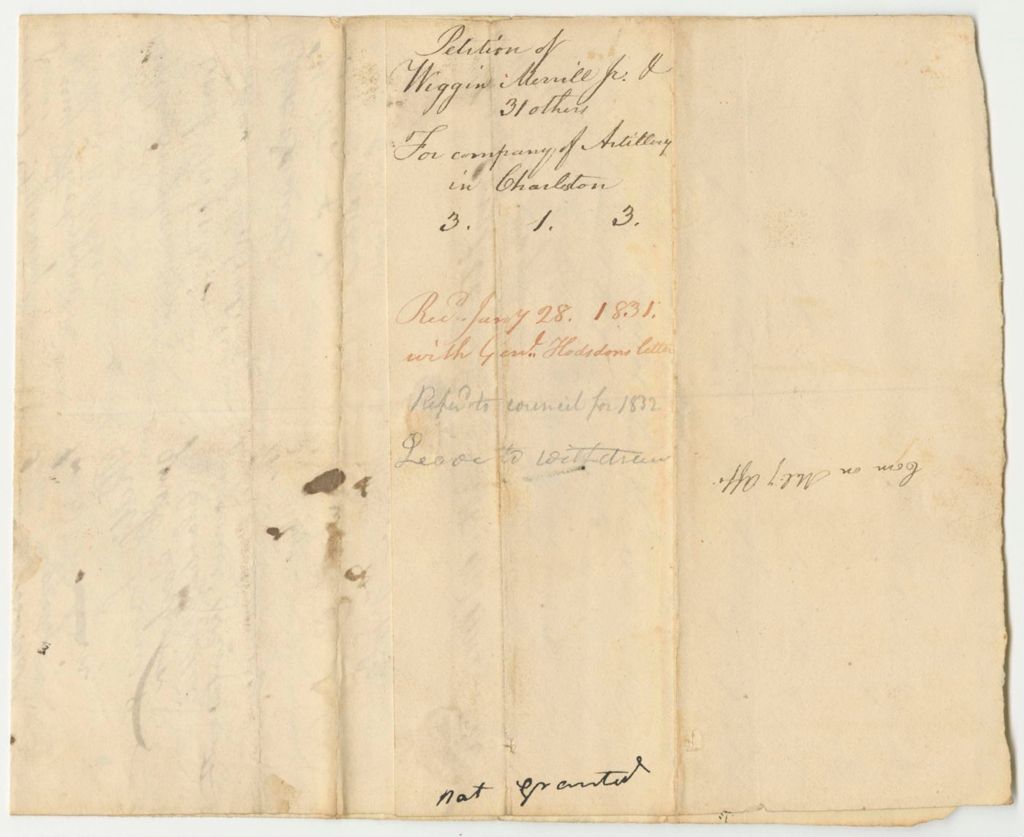 Petition of
Wiggin Merrill Jr. &
31 others
For company of Artillery
in Charleston
3. 1. 3.
Recd. Jany 28. 1831.
with Genl. Hodsdons letter
Refd to council for 1832
Leave to withdraw
not granted
Com on Mily Affs.